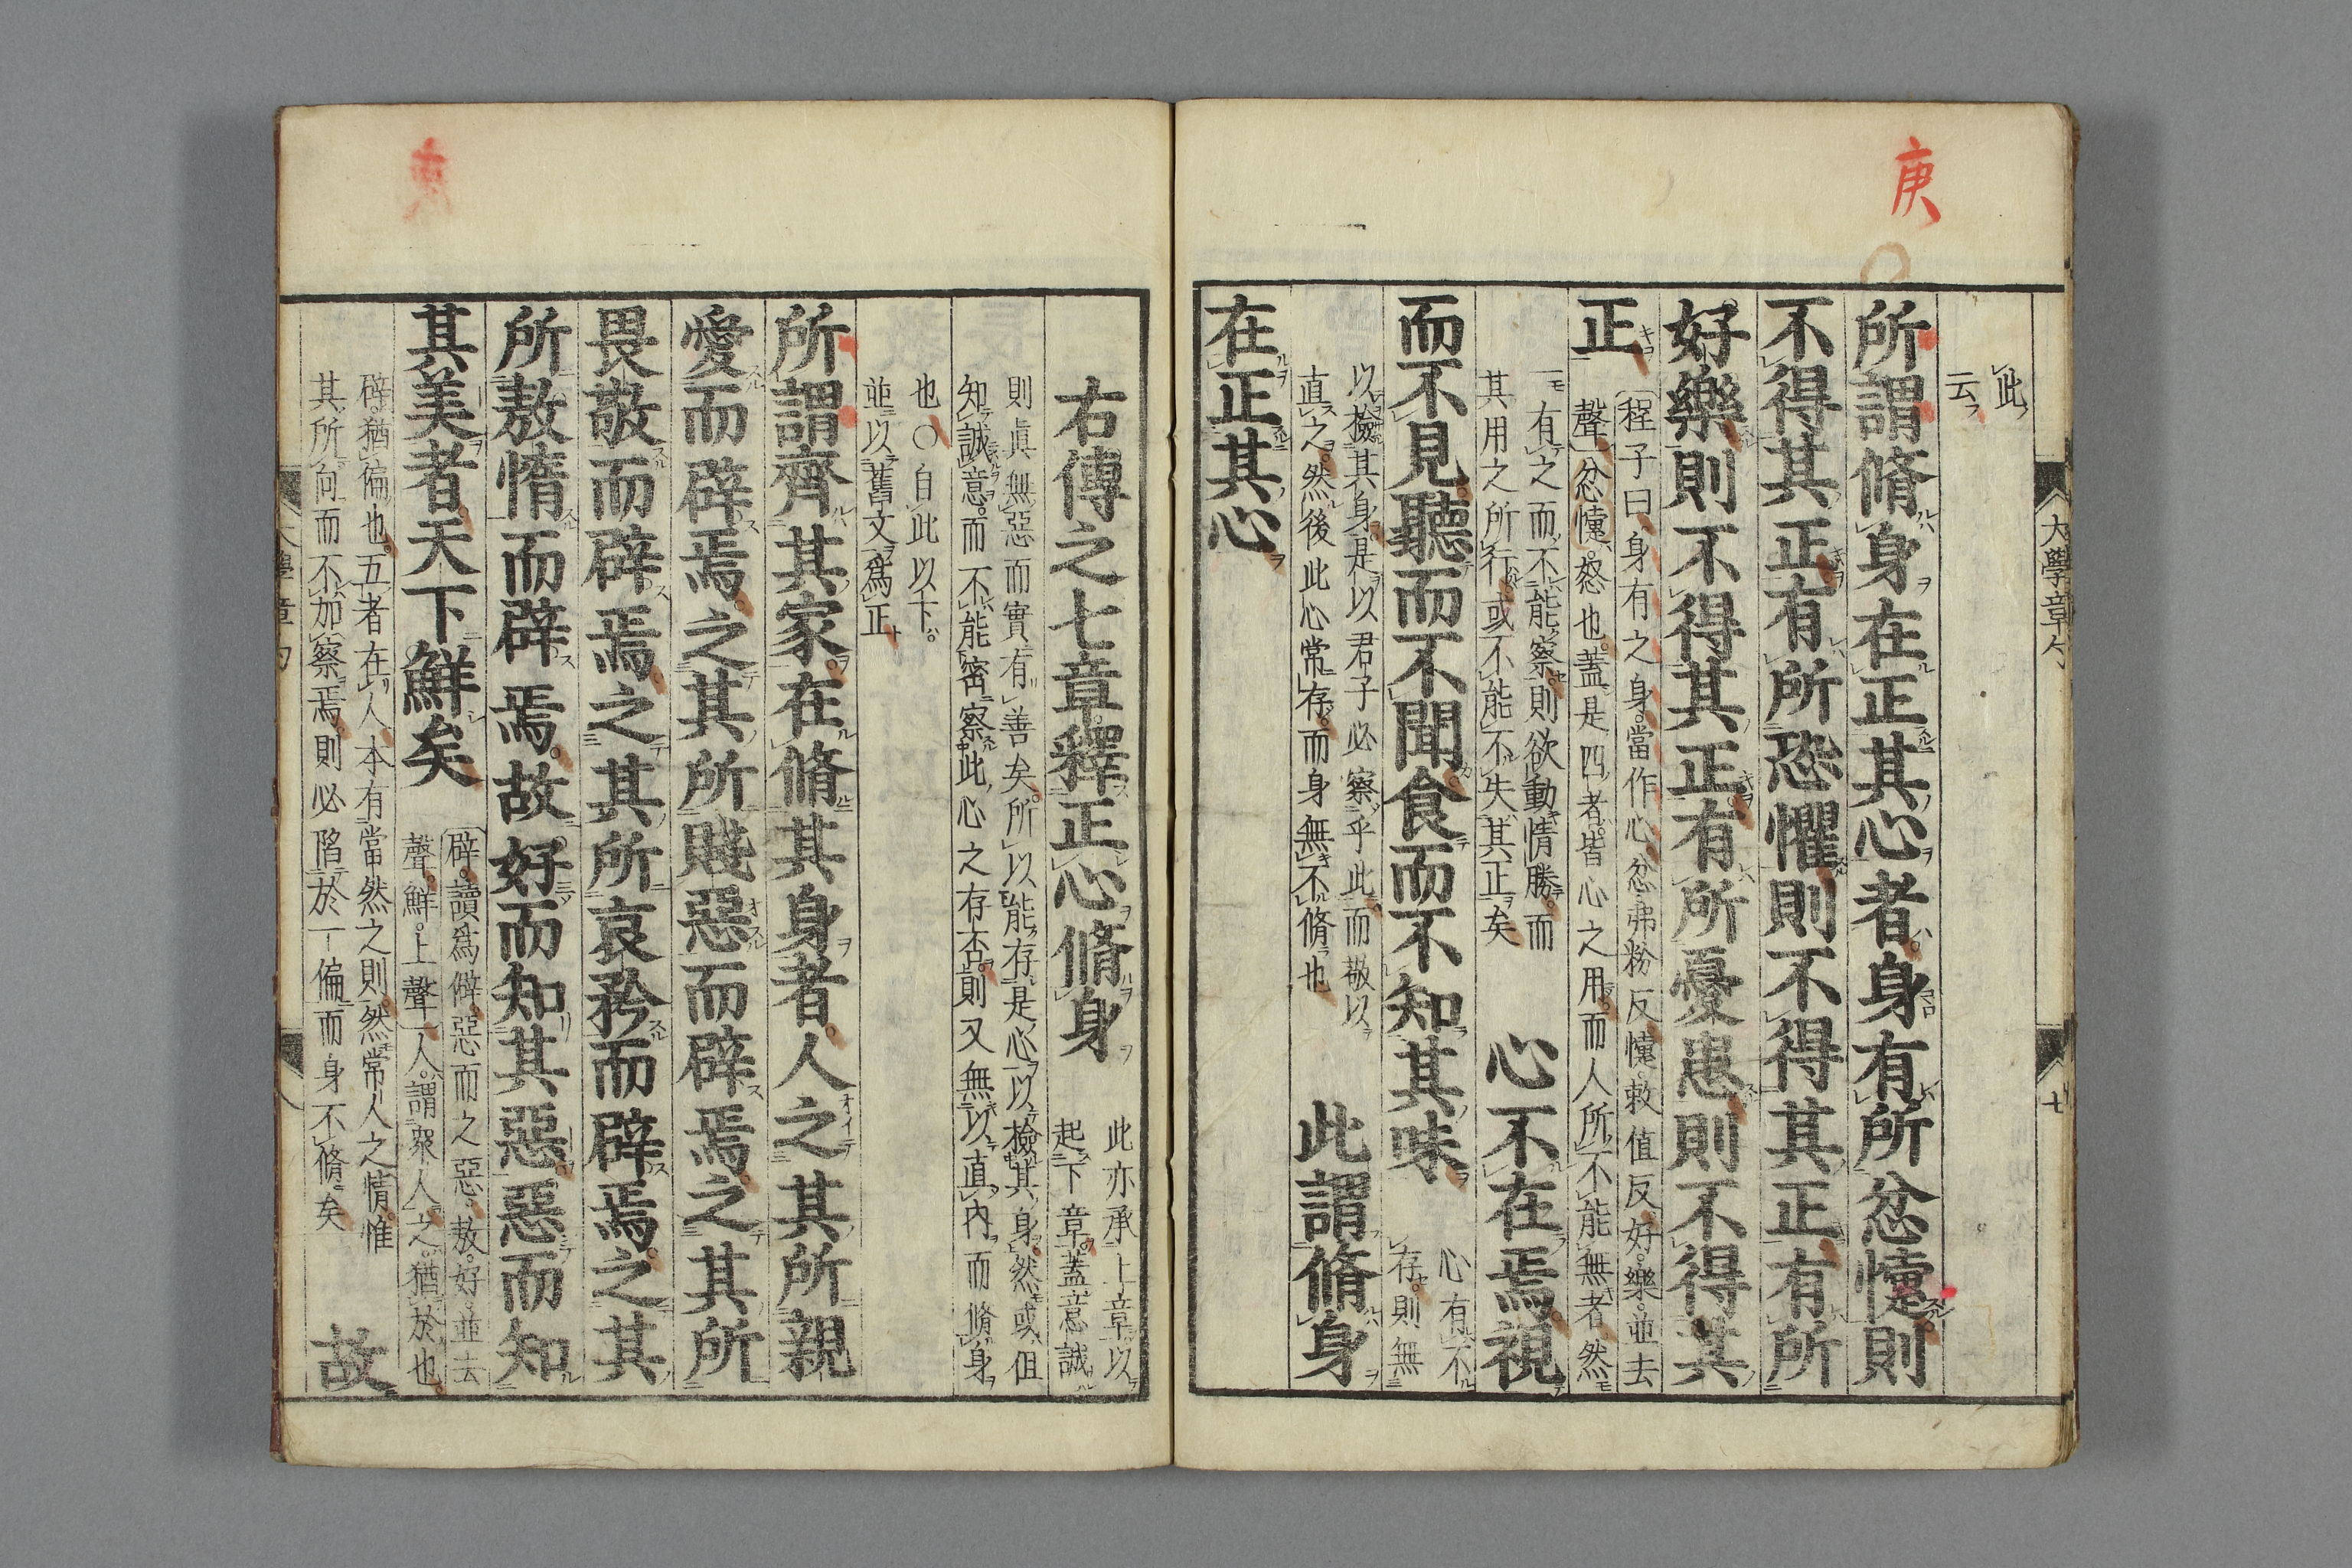 庚
大學章句
七
此
云
所謂脩身在正其心者身有所忿懥則
不得其正有所恐懼則不得其正有所
好樂則不得其正有所憂患則不得其
正
程子曰身有之身當作心忿弗粉反懥敕值反好樂並去
聲忿懥怒也蓋是四者皆心之用而人所不能無者然
一有之而不能察則欲動情勝而
其用之所行或不能不失其正矣
心不在焉視
而不見聽而不聞食而不知其味
心有不
存則無
以檢其身是以君子必察乎此而敬以
直之然後此心常存而身無不脩也
此謂脩身
在正其心
右傳之七章釋正心脩身
此亦承上章以
起下章蓋意誠
則眞無惡而實有善矣所以能存是心以檢其身然或但
知誠意而不能密察此心之存否則又無以直內而脩身
也○自此以下
並以舊文爲正
所謂齊其家在脩其身者人之其所親
愛而辟焉之其所賤惡而辟焉之其所
畏敬而辟焉之其所哀矜而辟焉之其
所敖惰而辟焉故好而知其惡惡而知
其美者天下鮮矣
辟讀爲僻惡而之惡敖好並去
聲鮮上聲人謂衆人之猶於也
辟猶偏也五者在人本有當然之則然常人之情惟
其所向而不加察焉則必陷於一偏而身不脩矣
故